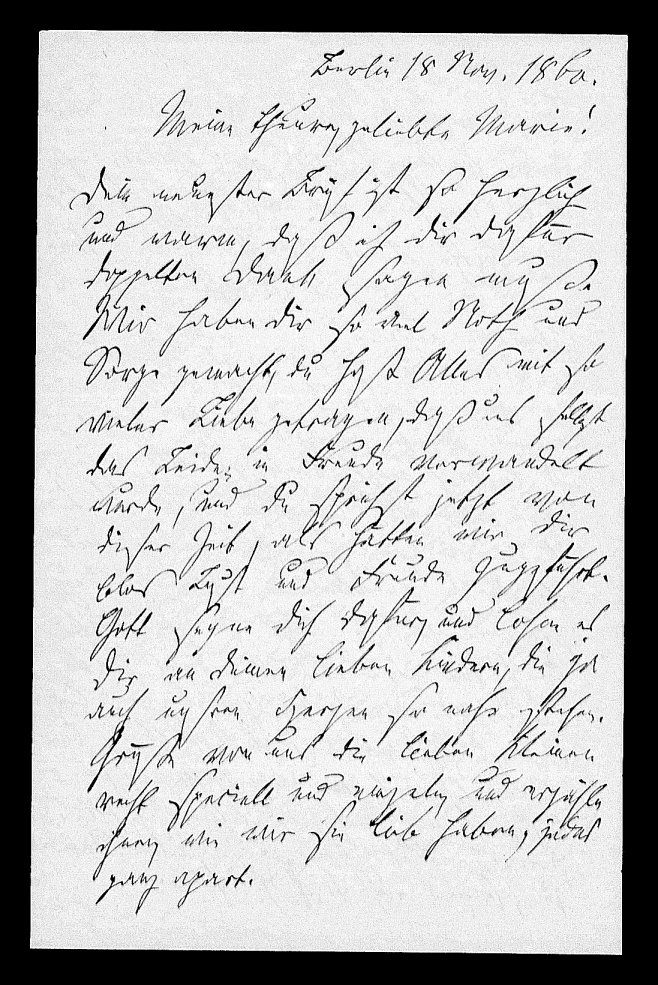 Berlin 18 Nov. 1860.
Meine theure, geliebte Marie!
Dein neuester Brief ist so herzlich
und warm, daß ich dir dafür
doppelten Dank sagen muß.
Wir haben dir so viel Noth und
Sorge gemacht, du hast Alles mit so
vieler Liebe getragen, daß uns selbst
das Leiden in Freude verwandelt
wurde, und du sprichst jetzt von
dieser Zeit, als hätten wir dir
blos Lust und Freude zugeführt.
Gott segne dich dafür, und lohne es
dir an deinen lieben Kindern, die ja
auch unsern Herzen so nahe stehen.
Grüße von uns die lieben Kleinen
recht speciell und einzeln, und erzähle
ihnen, wie wir sie lieb haben, jedes
ganz apart.